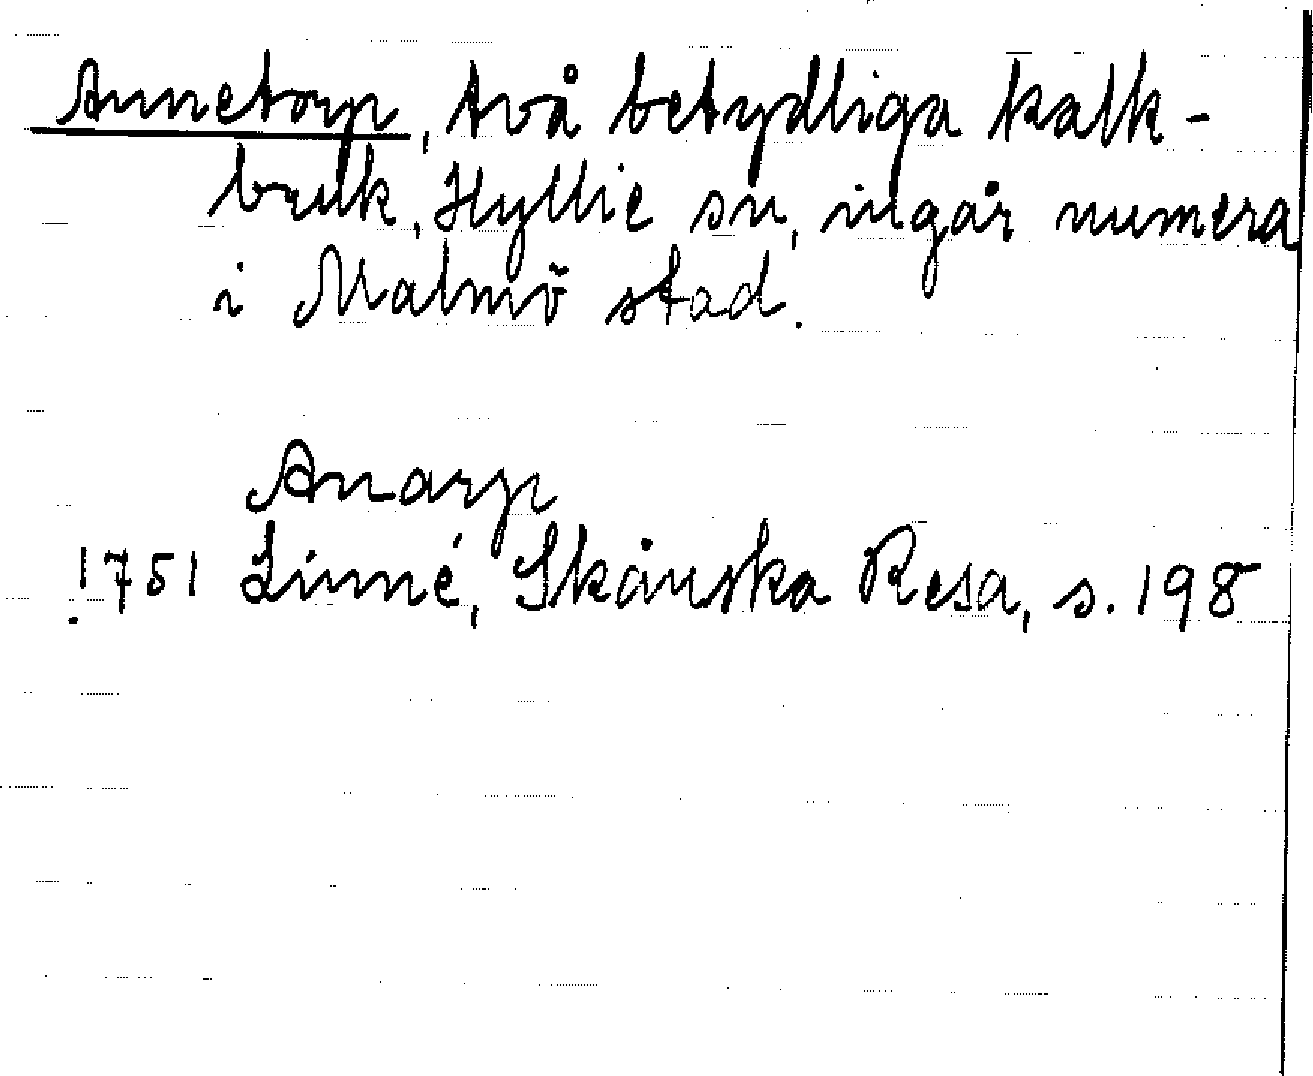 Annetorp, två betydliga kalk-
bruk, Hyllie sn, ingår numera
i Malmö stad.
Anarp
1751 Linné, Skånska Resa, s. 198